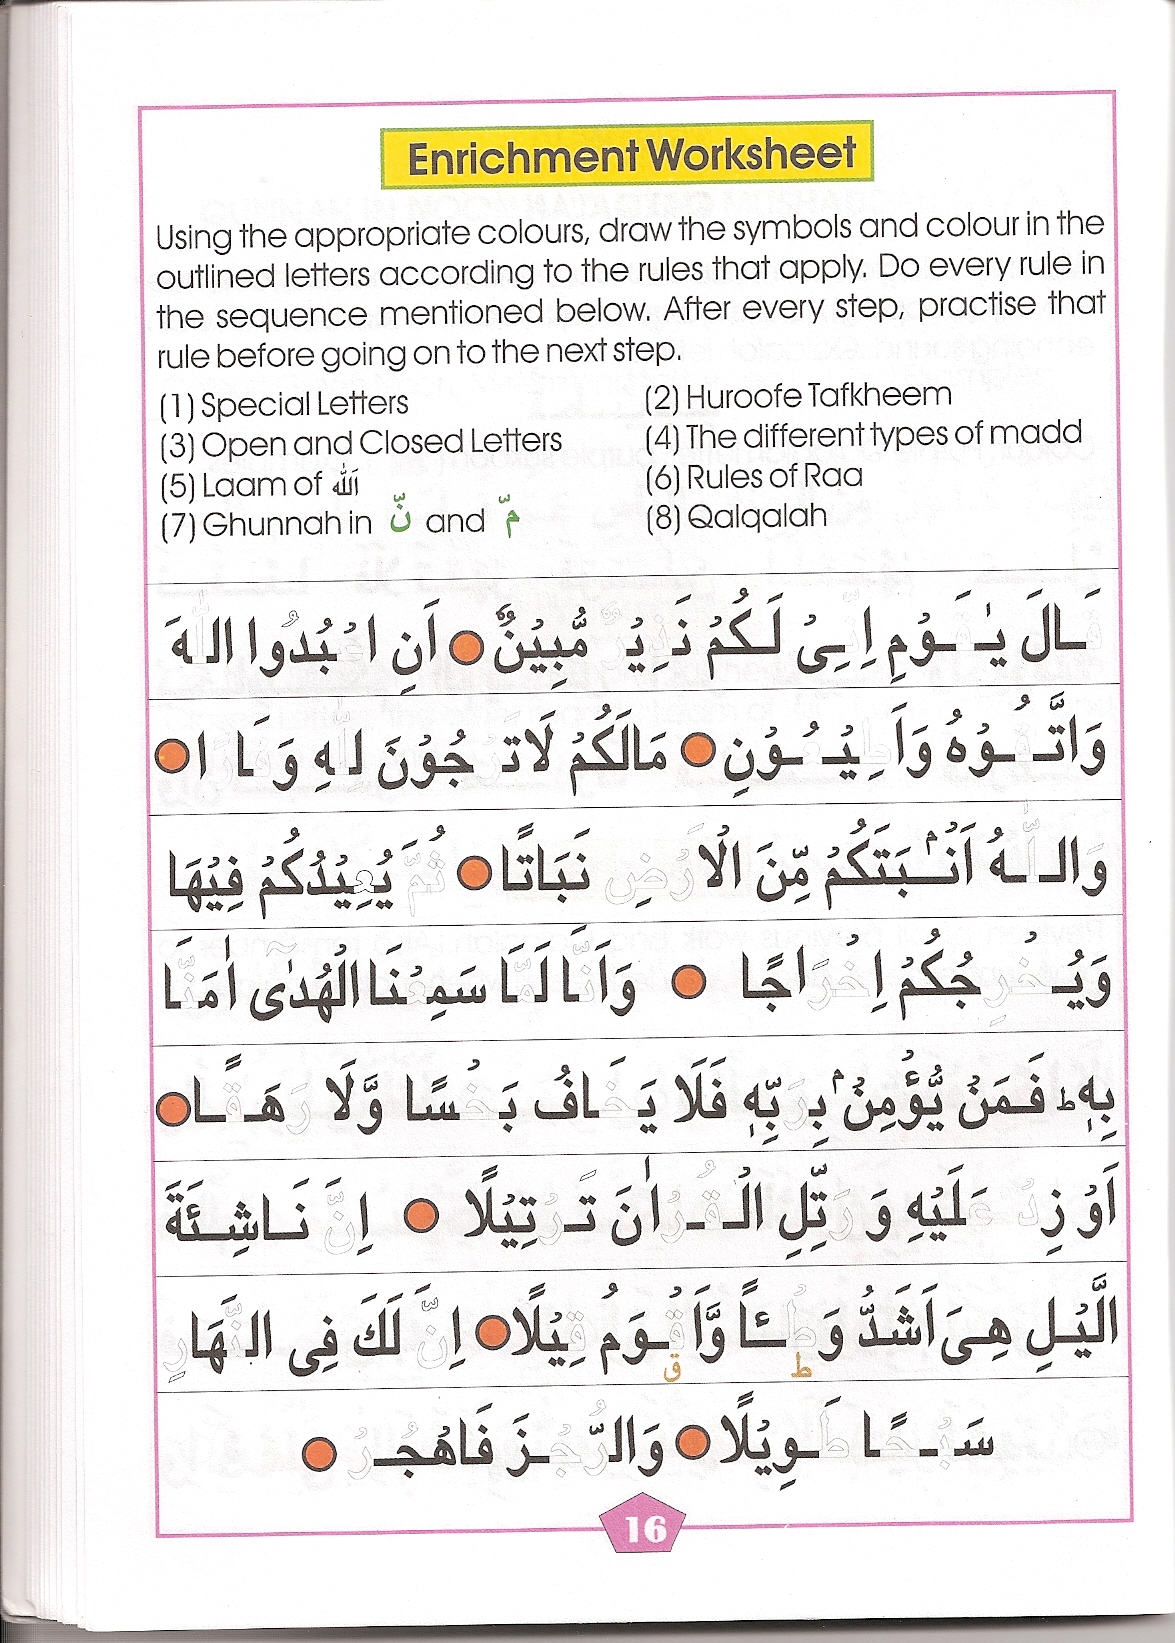 Enrichment Worksheet
Using the appropriate colours, draw the symbols and colour in the
outlined letters according to the rules that apply. Do every rule in
the sequence mentioned below. After every step, practise that
rule before going on to the next step.
(1) Special Letters (2) Huroofe Tafkheem
(3) Open and Closed Letters (4) The different types of madd
(5) Laam of اَللّٰه (6) Rules of Raa
(7) Ghunnah in نّ and مّ (8) Qalqalah
قَالَ يٰقَوْمِ اِنِّىْ لَكُمْ نَذِيْرٌ مُّبِيْنٌ اَنِ اعْبُدُوا اللّٰهَ
وَاتَّقُوْهُ وَاَطِيْعُوْنِ مَالَكُمْ لَاتَرْجُوْنَ لِلّٰهِ وَقَارًا
وَاللّٰهُ اَنْۢبَتَكُمْ مِّنَ الْاَرْضِ نَبَاتًا ثُمَّ يُعِيْدُكُمْ فِيْهَا
وَيُخْرِجُكُمْ اِخْرَاجًا وَاَنَّا لَمَّا سَمِعْنَا الْهُدٰٓى اٰمَنَّا
بِهٖ ط فَمَنْ يُّؤْمِنْۢ بِرَبِّهٖ فَلَا يَخَافُ بَخْسًا وَّلَا رَهَقًا
اَوْ زِدْ عَلَيْهِ وَ رَتِّلِ الْقُرْاٰنَ تَرْتِيْلًا اِنَّ نَاشِئَةَ
الَّيْلِ هِىَ اَشَدُّ وَطْـئًا وَّاَقْوَمُ قِيْلًا اِنَّ لَكَ فِى النَّهَارِ
ط ق
سَبْحًا طَوِيْلًا وَالرُّجْزَ فَاهْجُرْ
16